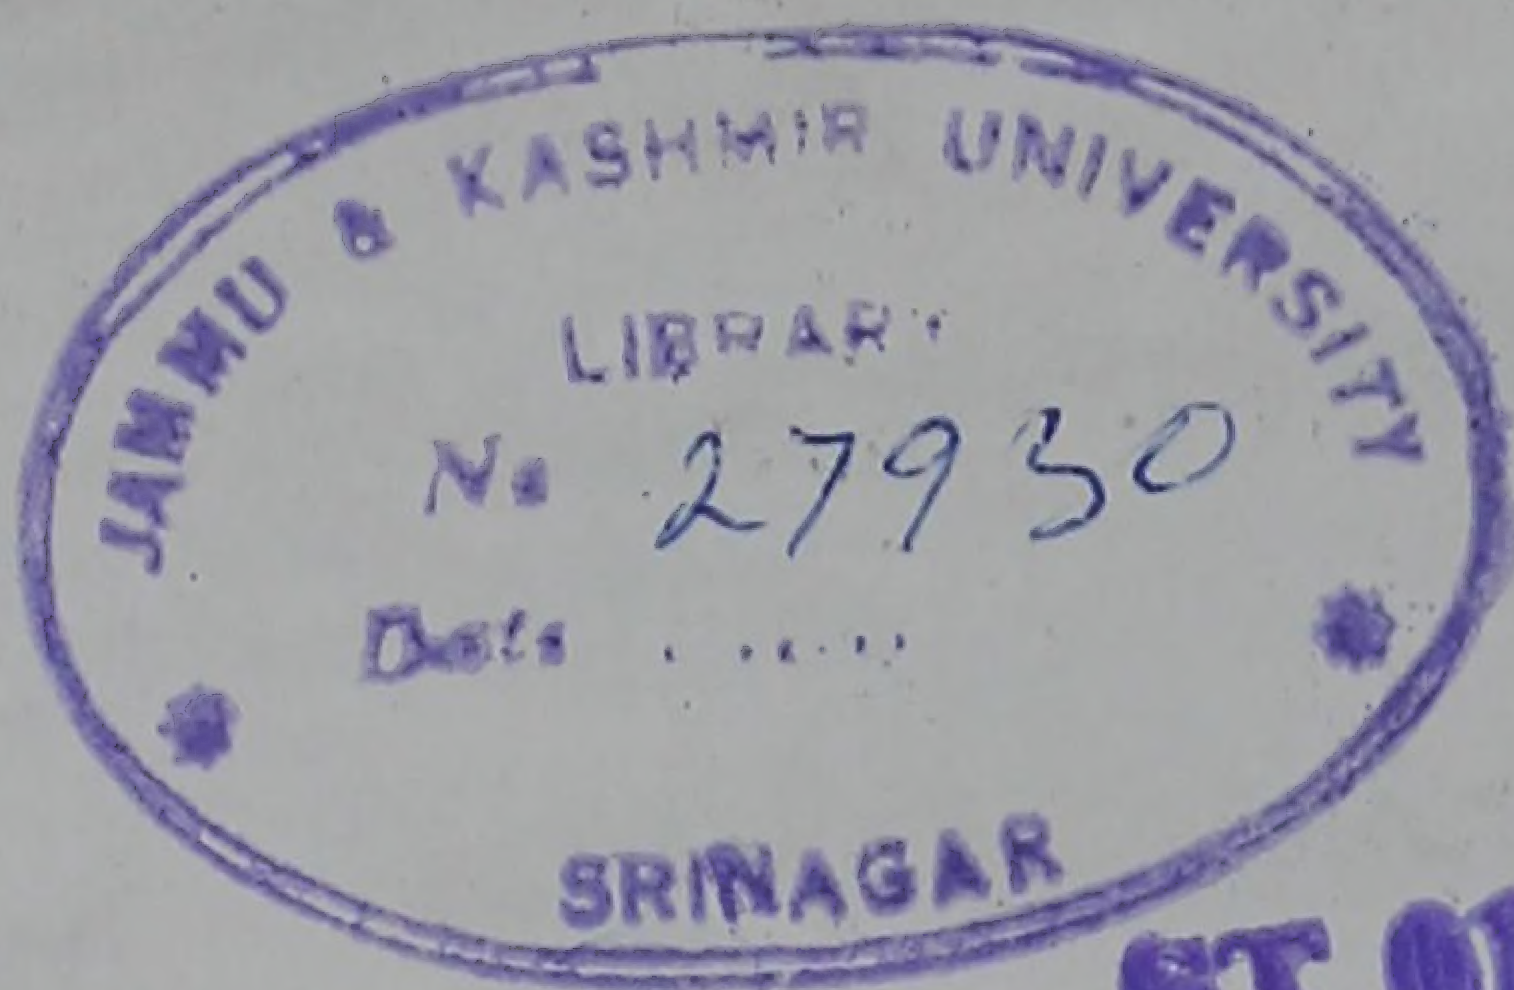 JAMMU & KASHMIR UNIVERSITY
LIBRARY
No 27930
Date ......
SRINAGAR